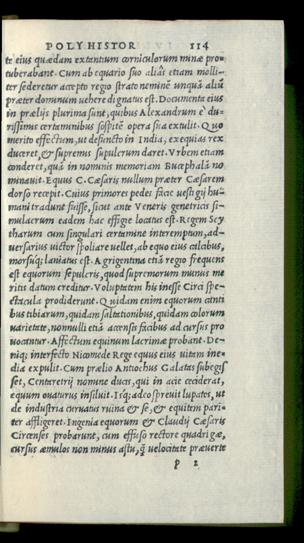 POLYHISTOR 114
te eius quædam extantium corniculorum minæ pro-
tuberabant. Cum ab equario suo aliâs etiam molli-
ter sederetur accepto regio strato neminẽ unquã aliũ
præter dominum uehere dignatus est. Documenta eius
in prælijs plurima sunt, quibus Alexandrum è du-
rissimis certaminibus sospitẽ opera sua extulit. Quo
merito effectum, ut defuncto in India, exequias rex
duceret, & supremis sepulcrum daret. Vrbem etiam
conderet, quã in nominis memoriam Bucephalã no
minauit. Equus C. Cæsaris nullum præter Cæsarem
dorso recepit. Cuius primores pedes facie uestigij hu-
mani tradunt fuisse, sicut ante Veneris genetricis si-
mulacrum eadem hac effigie locatus est. Regem Scy
tharum cum singulari certamine interemptum, ad-
uersarius uictor spoliare uellet, ab equo eius calcibus,
morsuq; laniatus est. Agrigentina etiã regio frequens
est equorum sepulcris, quod supremorum munus me
ritis datum creditur. Voluptatem his inesse Circi spe-
ctacula prodiderunt. Quidam enim equorum canti
bus tibiarum, quidam saltationibus, quidam colorum
uarietate, nonnulli etiã accensis facibus ad cursus pro
uocantur. Affectum equinum lacrimæ probant. De-
niq; interfecto Nicomede Rege equus eius uitem ine-
dia expulit. Cum prælio Antiochus Galatas subegis
set, Centaretrij nomine ducis, qui in acie ceciderat,
equum ouaturus insiluit. Isq; adeo spreuit lupatos, ut
de industria cernatus ruina & se, & equitem pari-
ter affligeret. Ingenia equorum & Claudij Cæsaris
Circenses probarunt, cum effuso rectore quadrigæ,
cursus æmulos non minus astu, q̃ uelocitate præuerte
p 2